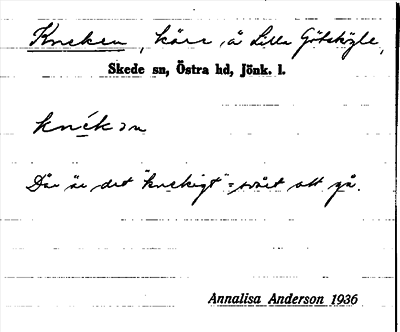 Kneken, kärr, å Lilla Götshyle,
Skede sn, Östra hd, Jönk. l.
knékən
Där är det "knekigt" = svårt att gå.
Annalisa Anderson 1936